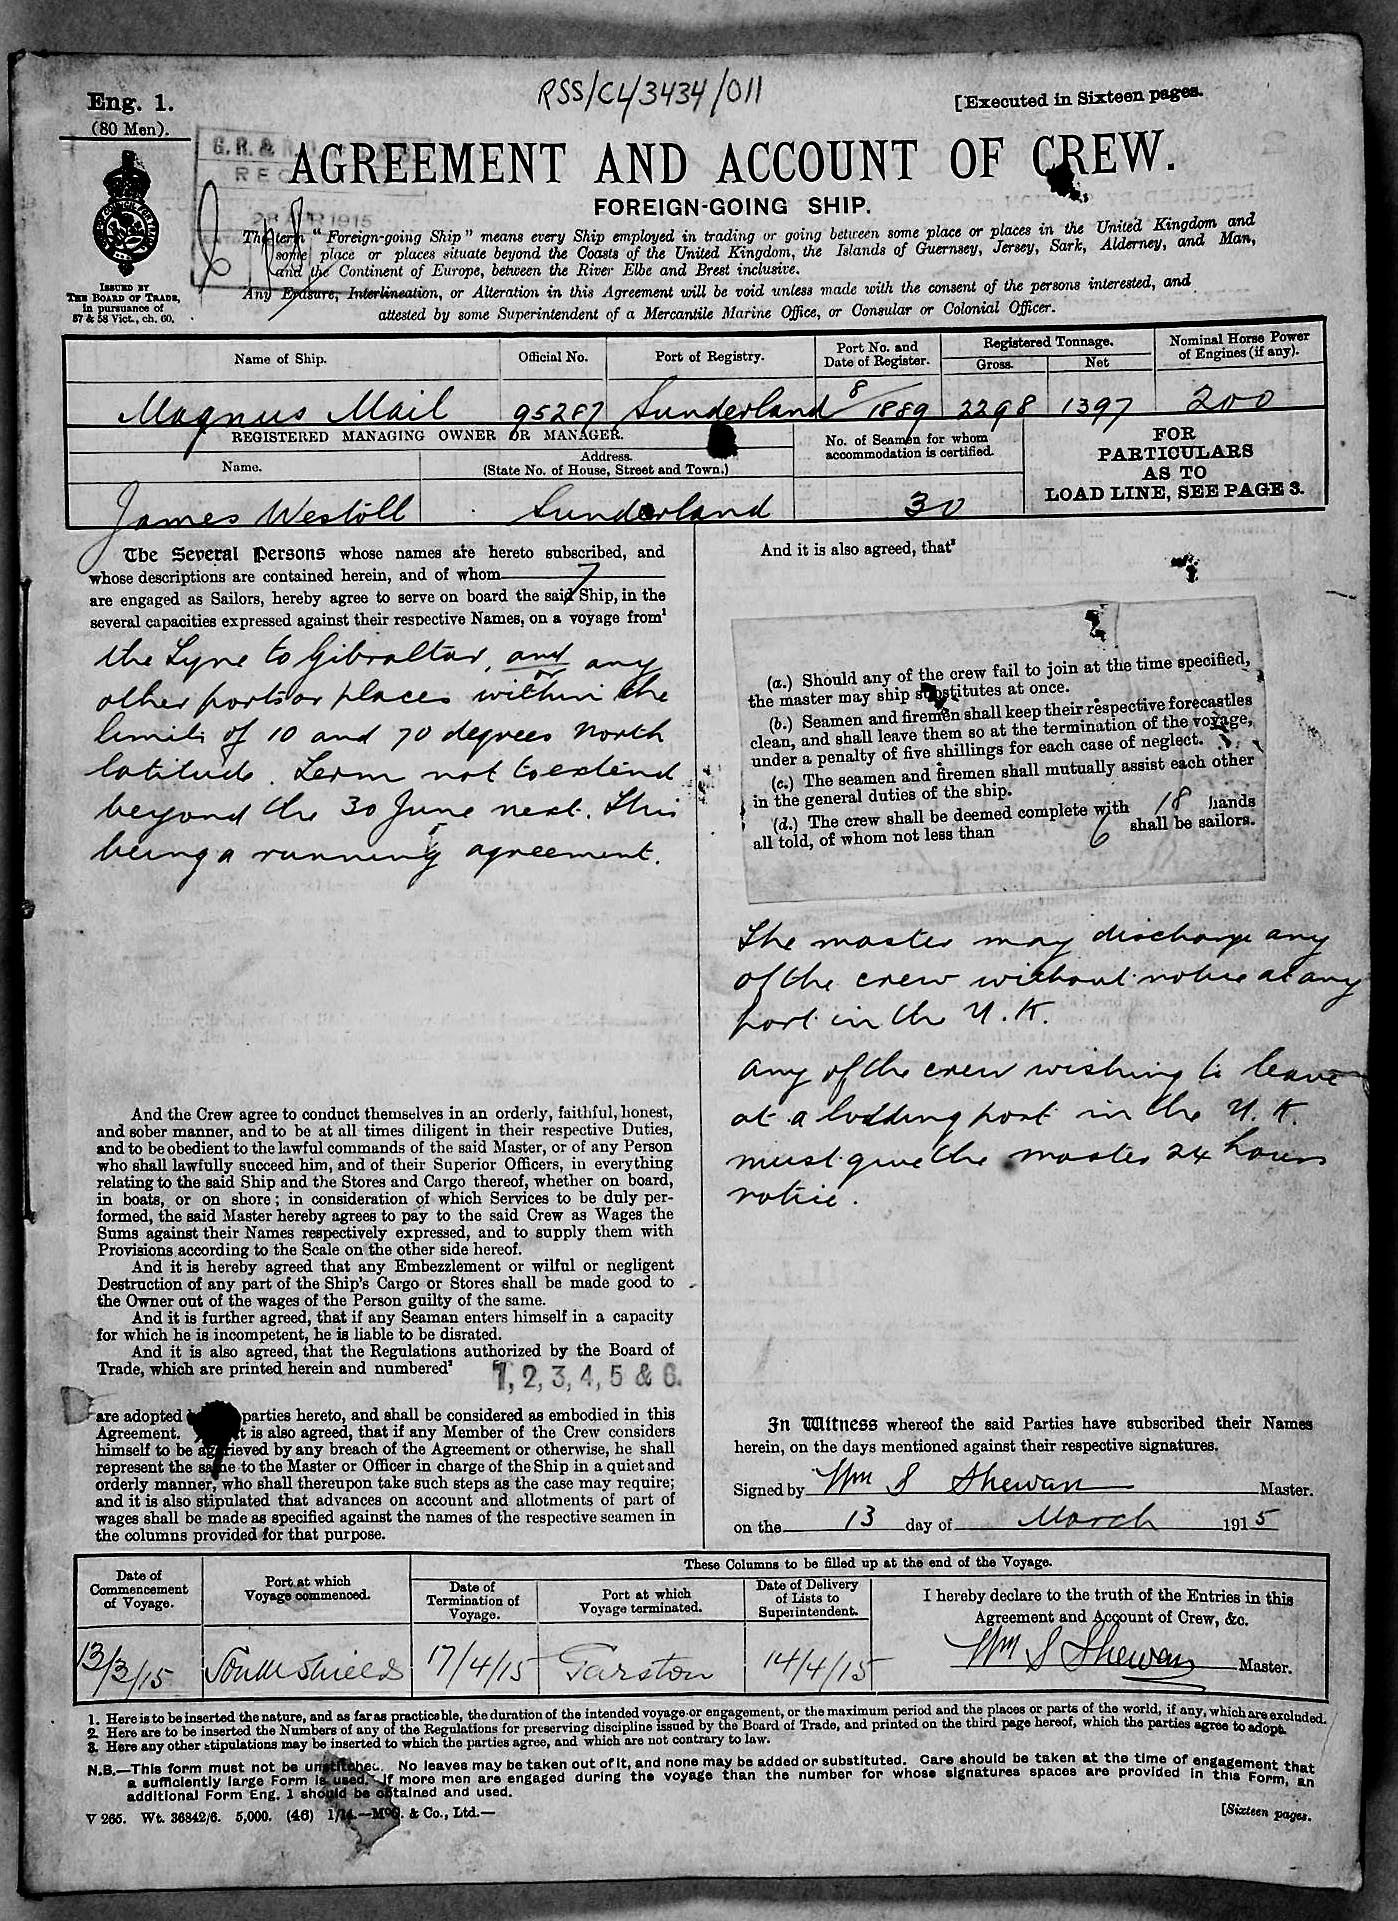 RSS/CL/3434/011
Eng. 1.
(80 Men).
[Executed in Sixteen pages.
G. R. &
REC
28 APR 1915
AGREEMENT AND ACCOUNT OF CREW.
FOREIGN-GOING SHIP.
ISSUED BY
THE BOARD OF TRADE,
in pursuance of
57 & 58 Vict., ch. 60.
The term "Foreign-going Ship" means every Ship employed in trading or going between some place or places in the United Kingdom and
some place or places situate beyond the Coasts of the United Kingdom, the Islands of Guernsey, Jersey, Sark, Alderney, and Man,
and the Continent of Europe, between the River Elbe and Brest inclusive.
Any Erasure, Interlineation, or Alteration in this Agreement will be void unless made with the consent of the persons interested, and
attested by some Superintendent of a Mercantile Marine Office, or Consular or Colonial Officer.
Name of Ship. Official No. Port of Registry. Port No. and Date of Register. Registered Tonnage. Gross. Net Nominal Horse Power of Engines (if any).
Magnus Mail 95287 Sunderland 8/1889 2298 1397 200
REGISTERED MANAGING OWNER OR MANAGER.
Name. Address. (State No. of House, Street and Town.)
No. of Seamen for whom accommodation is certified.
FOR
PARTICULARS
AS TO
LOAD LINE, SEE PAGE 3.
James Westoll Sunderland 30
The Several Persons whose names are hereto subscribed, and
whose descriptions are contained herein, and of whom 7
are engaged as Sailors, hereby agree to serve on board the said Ship, in the
several capacities expressed against their respective Names, on a voyage from¹
the Tyne to Gibraltar, and any
or
other ports or places within the
limits of 10 and 70 degrees north
latitude. Term not to extend
beyond the 30 June next. This
being a running agreement.
And the Crew agree to conduct themselves in an orderly, faithful, honest,
and sober manner, and to be at all times diligent in their respective Duties,
and to be obedient to the lawful commands of the said Master, or of any Person
who shall lawfully succeed him, and of their Superior Officers, in everything
relating to the said Ship and the Stores and Cargo thereof, whether on board,
in boats, or on shore; in consideration of which Services to be duly per-
formed, the said Master hereby agrees to pay to the said Crew as Wages the
Sums against their Names respectively expressed, and to supply them with
Provisions according to the Scale on the other side hereof.
And it is hereby agreed that any Embezzlement or wilful or negligent
Destruction of any part of the Ship's Cargo or Stores shall be made good to
the Owner out of the wages of the Person guilty of the same.
And it is further agreed, that if any Seaman enters himself in a capacity
for which he is incompetent, he is liable to be disrated.
And it is also agreed, that the Regulations authorized by the Board of
Trade, which are printed herein and numbered² 1, 2, 3, 4, 5 & 6.
are adopted parties hereto, and shall be considered as embodied in this
Agreement. it is also agreed, that if any Member of the Crew considers
himself to be aggrieved by any breach of the Agreement or otherwise, he shall
represent the same to the Master or Officer in charge of the Ship in a quiet and
orderly manner, who shall thereupon take such steps as the case may require;
and it is also stipulated that advances on account and allotments of part of
wages shall be made as specified against the names of the respective seamen in
the columns provided for that purpose.
And it is also agreed, that³
(a.) Should any of the crew fail to join at the time specified,
the master may ship substitutes at once.
(b.) Seamen and firemen shall keep their respective forecastles
clean, and shall leave them so at the termination of the voyage,
under a penalty of five shillings for each case of neglect.
(c.) The seamen and firemen shall mutually assist each other
in the general duties of the ship.
(d.) The crew shall be deemed complete with 18 hands
all told, of whom not less than 6 shall be sailors.
The master may discharge any
of the crew without notice at any
port in the U.K.
Any of the crew wishing to leave
at a loading port in the U.K.
must give the master 24 hours
notice.
In Witness whereof the said Parties have subscribed their Names
herein, on the days mentioned against their respective signatures.
Signed by Wm S Shewan Master.
on the 13 day of March 1915
Date of Commencement of Voyage. Port at which Voyage commenced.
These Columns to be filled up at the end of the Voyage.
Date of Termination of Voyage. Port at which Voyage terminated. Date of Delivery of Lists to Superintendent.
I hereby declare to the truth of the Entries in this
Agreement and Account of Crew, &c.
13/3/15 South Shields 17/4/15 Garston 14/4/15 Wm S Shewan Master.
1. Here is to be inserted the nature, and as far as practicable, the duration of the intended voyage or engagement, or the maximum period and the places or parts of the world, if any, which are excluded.
2. Here are to be inserted the Numbers of any of the Regulations for preserving discipline issued by the Board of Trade, and printed on the third page hereof, which the parties agree to adopt.
3. Here any other stipulations may be inserted to which the parties agree, and which are not contrary to law.
N.B.—This form must not be unstitched. No leaves may be taken out of it, and none may be added or substituted. Care should be taken at the time of engagement that
a sufficiently large Form is used. If more men are engaged during the voyage than the number for whose signatures spaces are provided in this Form, an
additional Form Eng. 1 should be obtained and used.
V 265. Wt. 36842/6. 5,000. (46) 1/14.—McC. & Co., Ltd.—
[Sixteen pages.